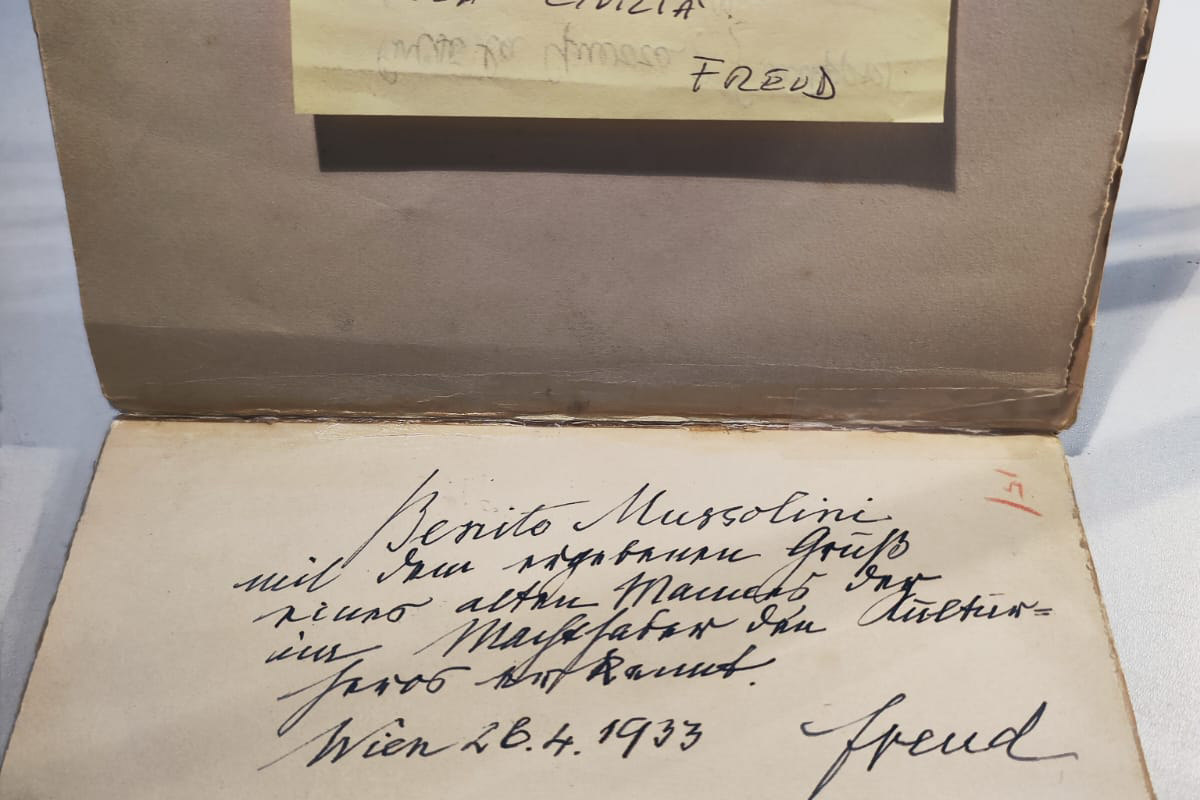 CIVILTÀ.
FREUD
Benito Mussolini
mit dem ergebenen Gruß
eines alten Mannes der
im Machthaber den Kultur=
heros erkennt.
Wien 26.4.1933 Freud